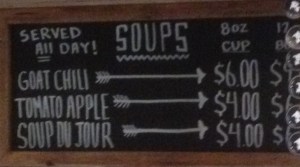 SERVED All DAY! SOUPS 8oz CUP 12
GOAT CHILI $6.00 $
TOMATO APPLE $4.00 $
SOUP DU JOUR $4.00 $